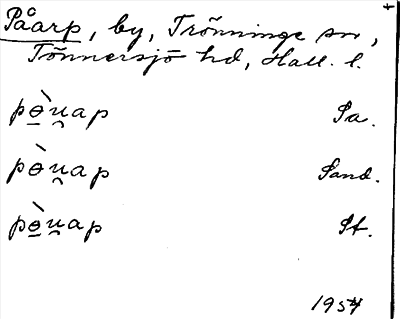 Påarp, by, Trönninge sn,
Tönnersjö hd, Hall. l.
pɵ̠̀u̯ap Sa.
pɵ̀u̯ap Sand.
pɵ̠̀u̯ap St.
1954